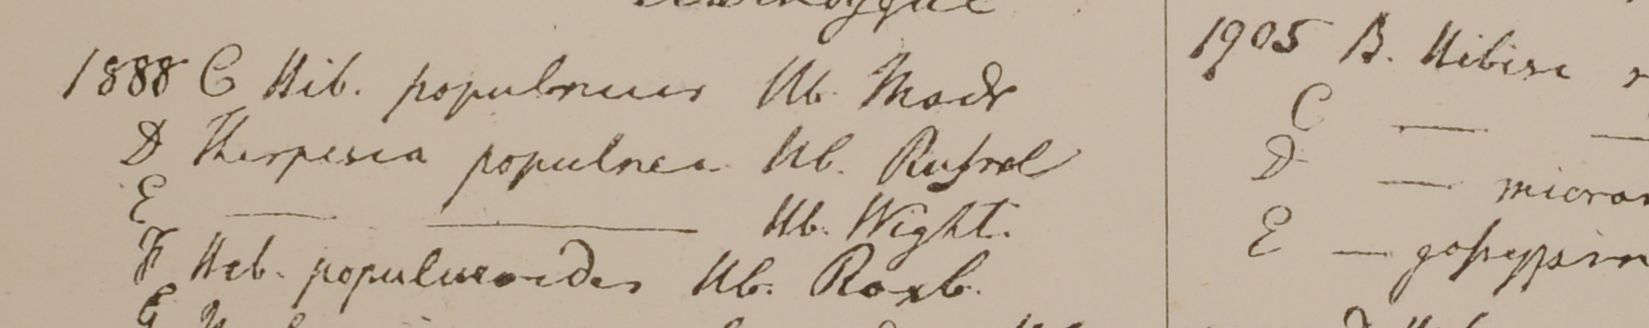 1888 C Hib. populneus Hb. Madr
D Thespesia populnea Hb. Russel
E — — Hb. Wight.
F Hib. populneoides Hb. Roxb.
G
1905 B. Hibisc
C — —
D — micran
E — gossypin